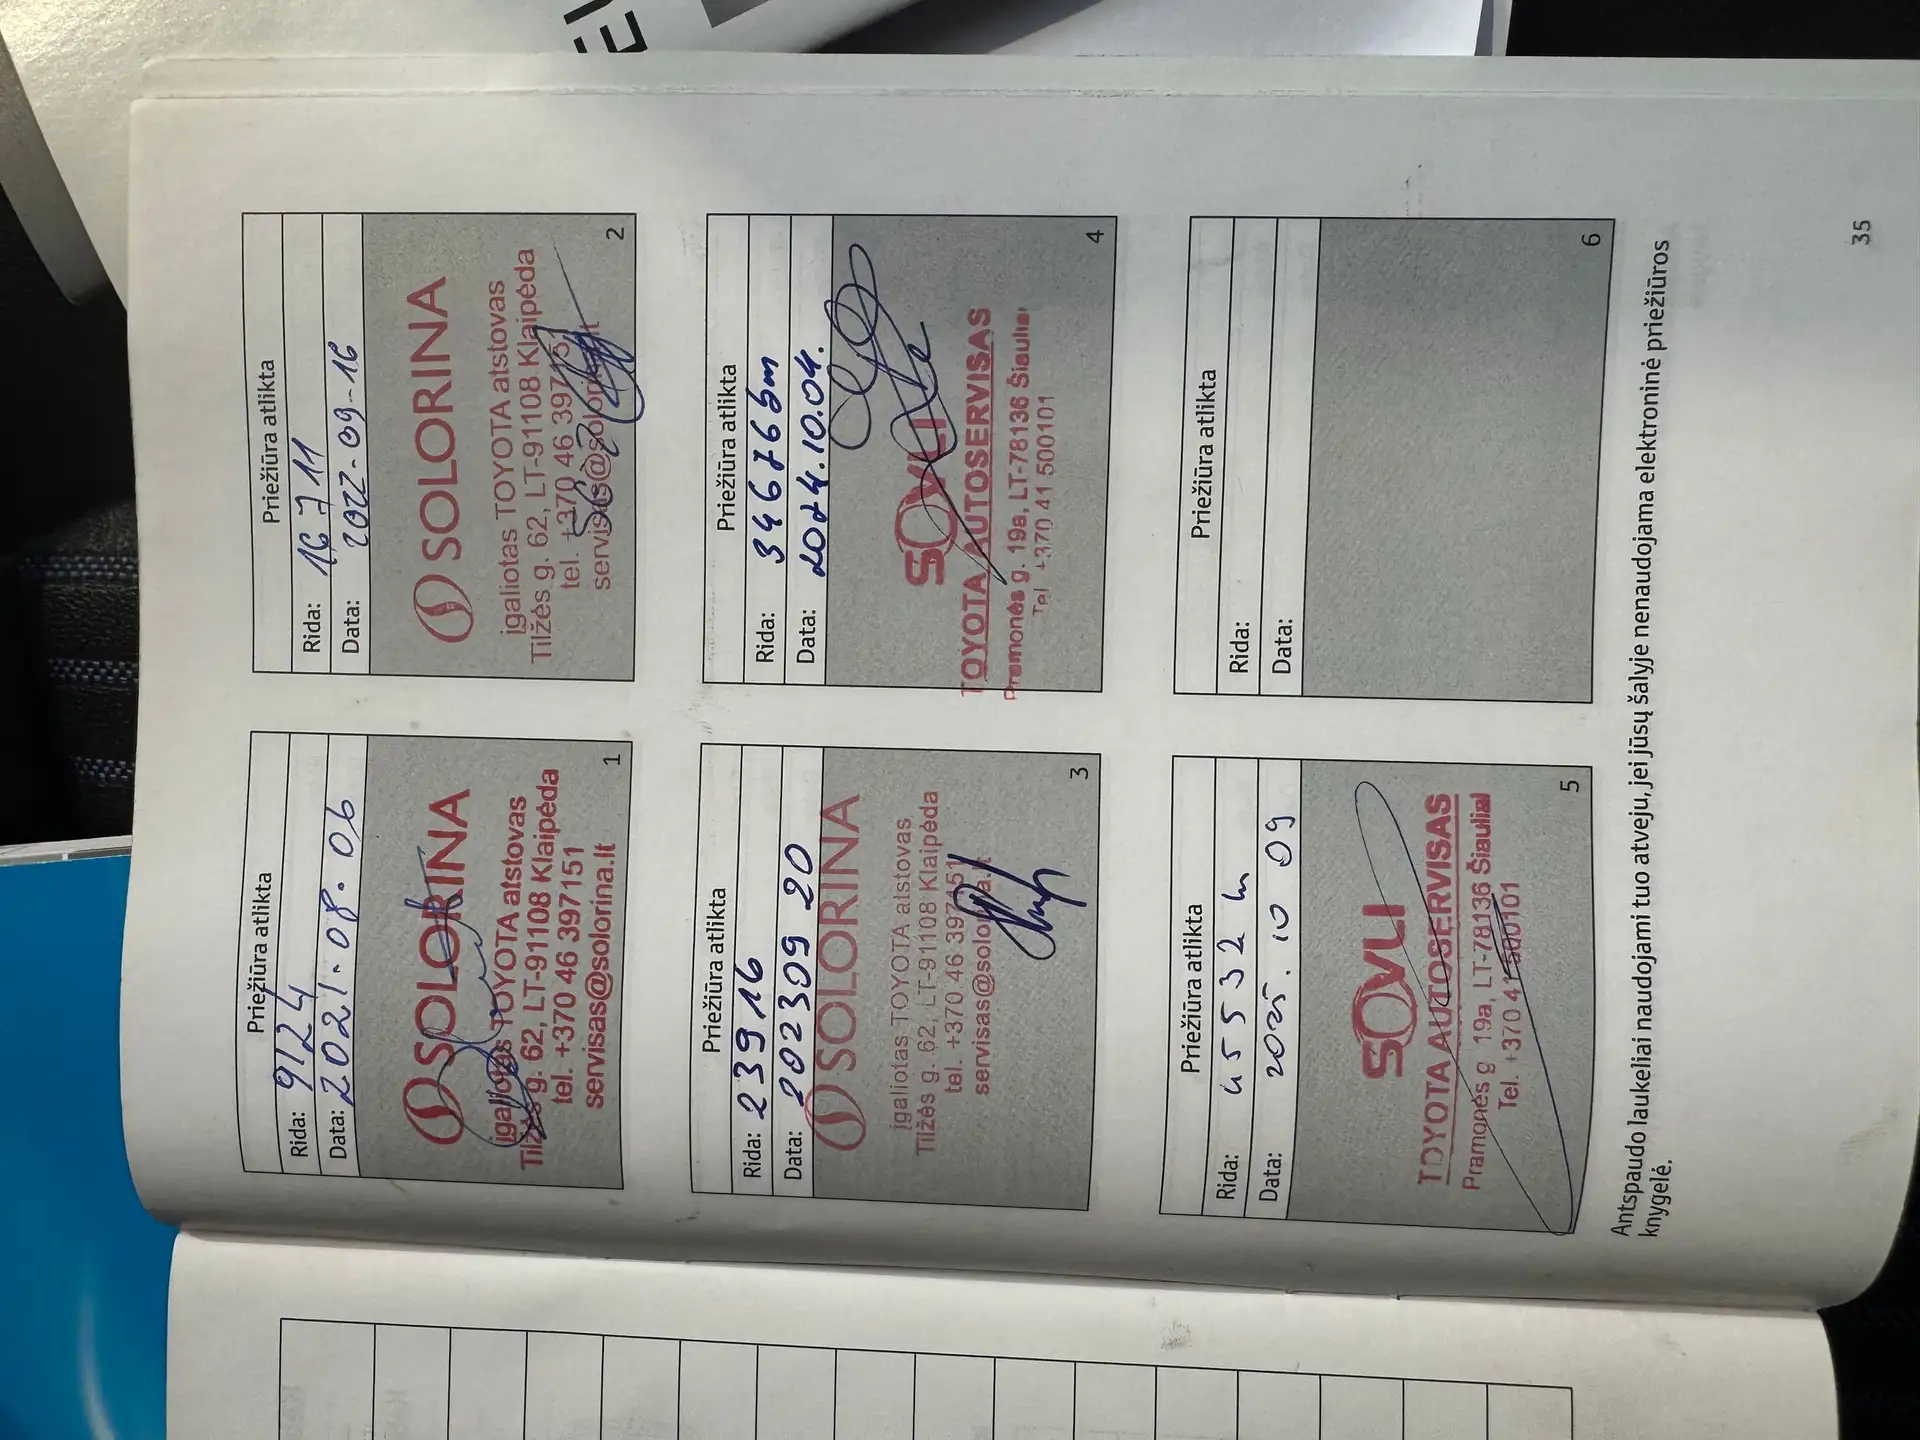 Priežiūra atlikta
Rida: 9124
Data: 2021.08.06
SOLORINA
įgaliotas TOYOTA atstovas
Tilžės g. 62, LT-91108 Klaipėda
tel. +370 46 397151
servisas@solorina.lt
1
Priežiūra atlikta
Rida: 16711
Data: 2022-09-16
SOLORINA
įgaliotas TOYOTA atstovas
Tilžės g. 62, LT-91108 Klaipėda
tel. +370 46 397151
servisas@solorina.lt
2
Priežiūra atlikta
Rida: 23916
Data: 2023 09 20
SOLORINA
įgaliotas TOYOTA atstovas
Tilžės g. 62, LT-91108 Klaipėda
tel. +370 46 397151
servisas@solorina.lt
3
Priežiūra atlikta
Rida: 34676 km
Data: 2024.10.04.
SOVLI
TOYOTA AUTOSERVISAS
Pramonės g. 19a, LT-78136 Šiauliai
Tel. +370 41 500101
4
Priežiūra atlikta
Rida: 45532 km
Data: 2025.10 09
SOVLI
TOYOTA AUTOSERVISAS
Pramonės g 19a, LT-78136 Šiauliai
Tel. +370 41 500101
5
Priežiūra atlikta
Rida:
Data:
6
Antspaudo laukeliai naudojami tuo atveju, jei jūsų šalyje nenaudojama elektroninė priežiūros
knygelė.
35